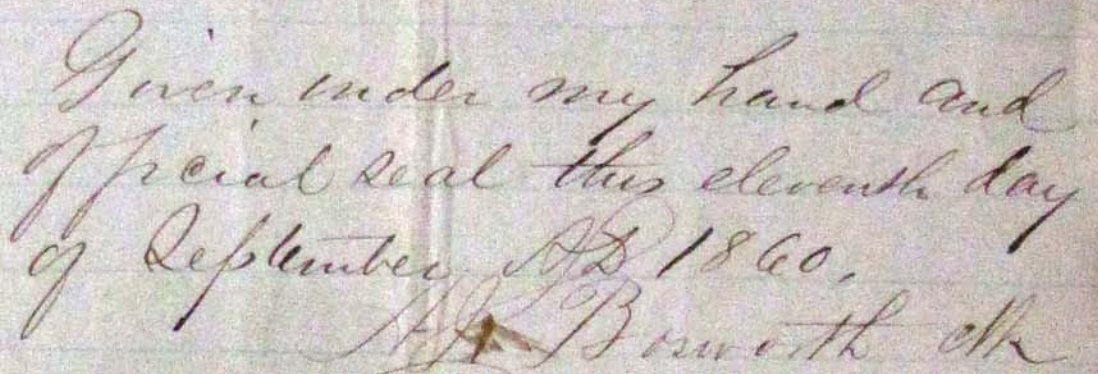 Given under my hand and
official seal this eleventh day
of September AD 1860.
Bosworth Clk